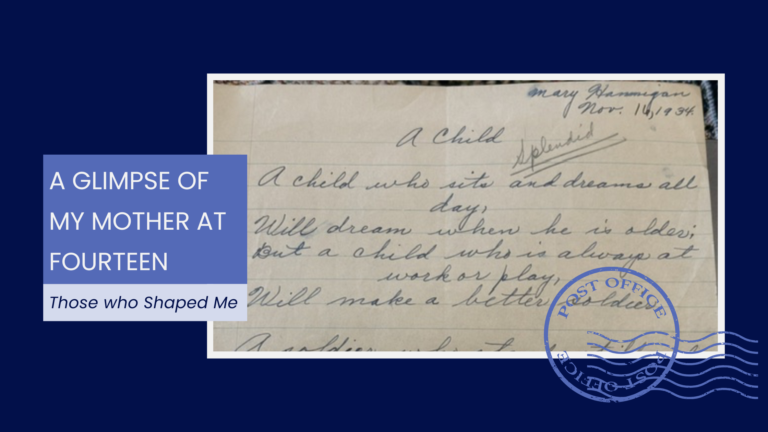 A GLIMPSE OF
MY MOTHER AT
FOURTEEN
Those who Shaped Me
Mary Hannigan
Nov. 16, 1934
A Child
Splendid
A child who sits and dreams all
day,
Will dream when he is older;
But a child who is always at
work or play,
Will make a better soldier.
A soldier who
POST OFFICE
POST OFFICE